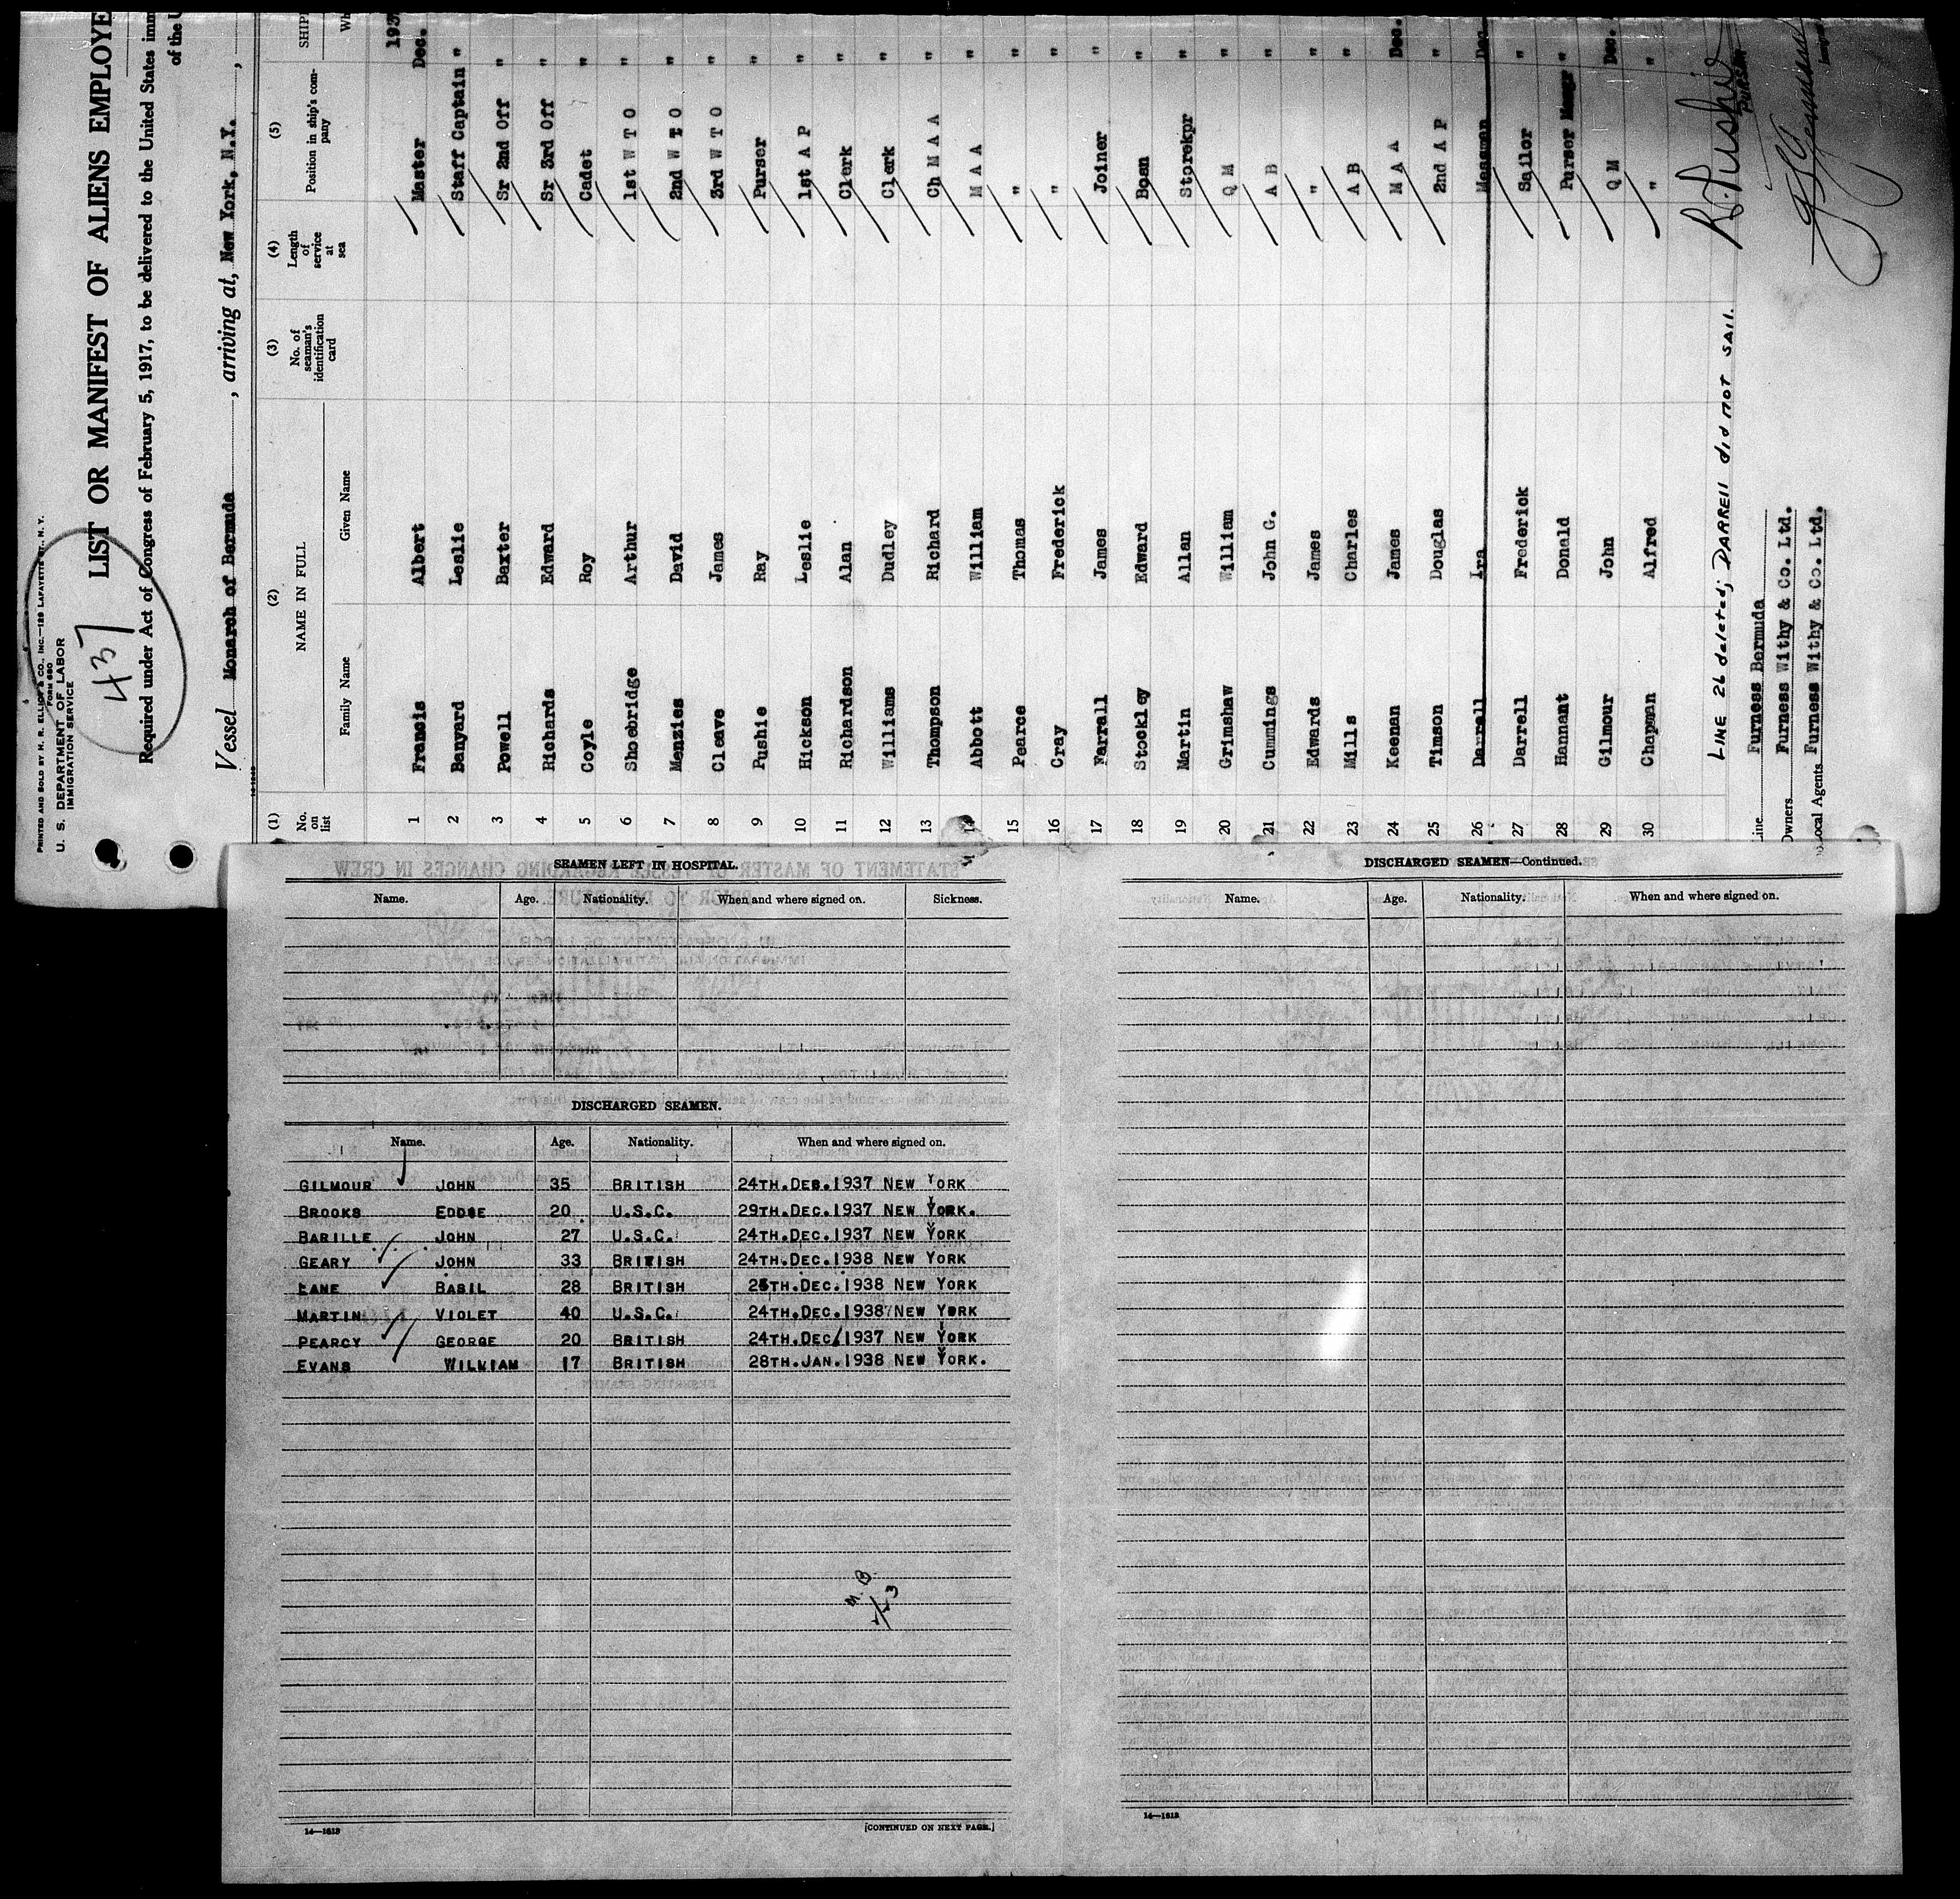 PRINTED AND SOLD BY H. R. ELLIOT & CO., INC.—129 LAFAYETTE ST., N. Y.
FORM 680
U. S. DEPARTMENT OF LABOR
IMMIGRATION SERVICE
437
LIST OR MANIFEST OF ALIENS EMPLOYE
Required under Act of Congress of February 5, 1917, to be delivered to the United States imm
of the U
Vessel Monarch of Bermuda, arriving at, New York, N.Y.,
(1) (2) (3) (4) (5)
No. on list NAME IN FULL No. of seaman's identification card Length of service at sea Position in ship's company SHIP
Family Name Given Name Wh
193
1 Francis Albert Master Dec.
2 Banyard Leslie Staff Captain "
3 Powell Baxter Sr 2nd Off "
4 Richards Edward Sr 3rd Off "
5 Coyle Roy Cadet "
6 Shoebridge Arthur 1st W T O "
7 Menzies David 2nd W T O "
8 Cleave James 3rd W T O "
9 Pushie Ray Purser "
10 Hickson Leslie 1st A P "
11 Richardson Alan Clerk "
12 Williams Dudley Clerk "
13 Thompson Richard Ch M A A "
14 Abbott William M A A "
15 Pearce Thomas " "
16 Cray Frederick " "
17 Farrall James Joiner "
18 Stockley Edward Bosn "
19 Martin Allan Storekpr "
20 Grimshaw William Q M "
21 Cummings John G. A B "
22 Edwards James " "
23 Mills Charles A B "
24 Keenan James M A A Dec.
25 Timson Douglas 2nd A P "
26 Darrell Ira Messman Dec.
27 Darrell Frederick Sailor "
28 Hannant Donald Purser "
29 Gilmour John Q M Dec.
30 Chapman Alfred " "
LINE 26 deleted; DARRELL did not sail.
R. Pushie
PURSER
Line Furness Bermuda
Owners Furness Withy & Co. Ltd.
Local Agents Furness Withy & Co. Ltd.
SEAMEN LEFT IN HOSPITAL.
Name. Age. Nationality. When and where signed on. Sickness.
DISCHARGED SEAMEN.
Name. Age. Nationality. When and where signed on.
GILMOUR JOHN 35 BRITISH 24TH.DEC.1937 NEW YORK
BROOKS EDDSE 20 U.S.C. 29TH.DEC.1937 NEW YORK.
BARILLE JOHN 27 U.S.C. 24TH.DEC.1937 NEW YORK
GEARY JOHN 33 BRITISH 24TH.DEC.1938 NEW YORK
LANE BASIL 28 BRITISH TH.DEC.1938 NEW YORK
MARTIN VIOLET 40 U.S.C. 24TH.DEC.1938 NEW YORK
PEARCY GEORGE 20 BRITISH 24TH.DEC.1937 NEW YORK
EVANS WILLIAM 17 BRITISH 28TH.JAN.1938 NEW YORK.
M.B.
14—1613
[CONTINUED ON NEXT PAGE.]
DISCHARGED SEAMEN—Continued.
Name. Age. Nationality. When and where signed on.
14—1613